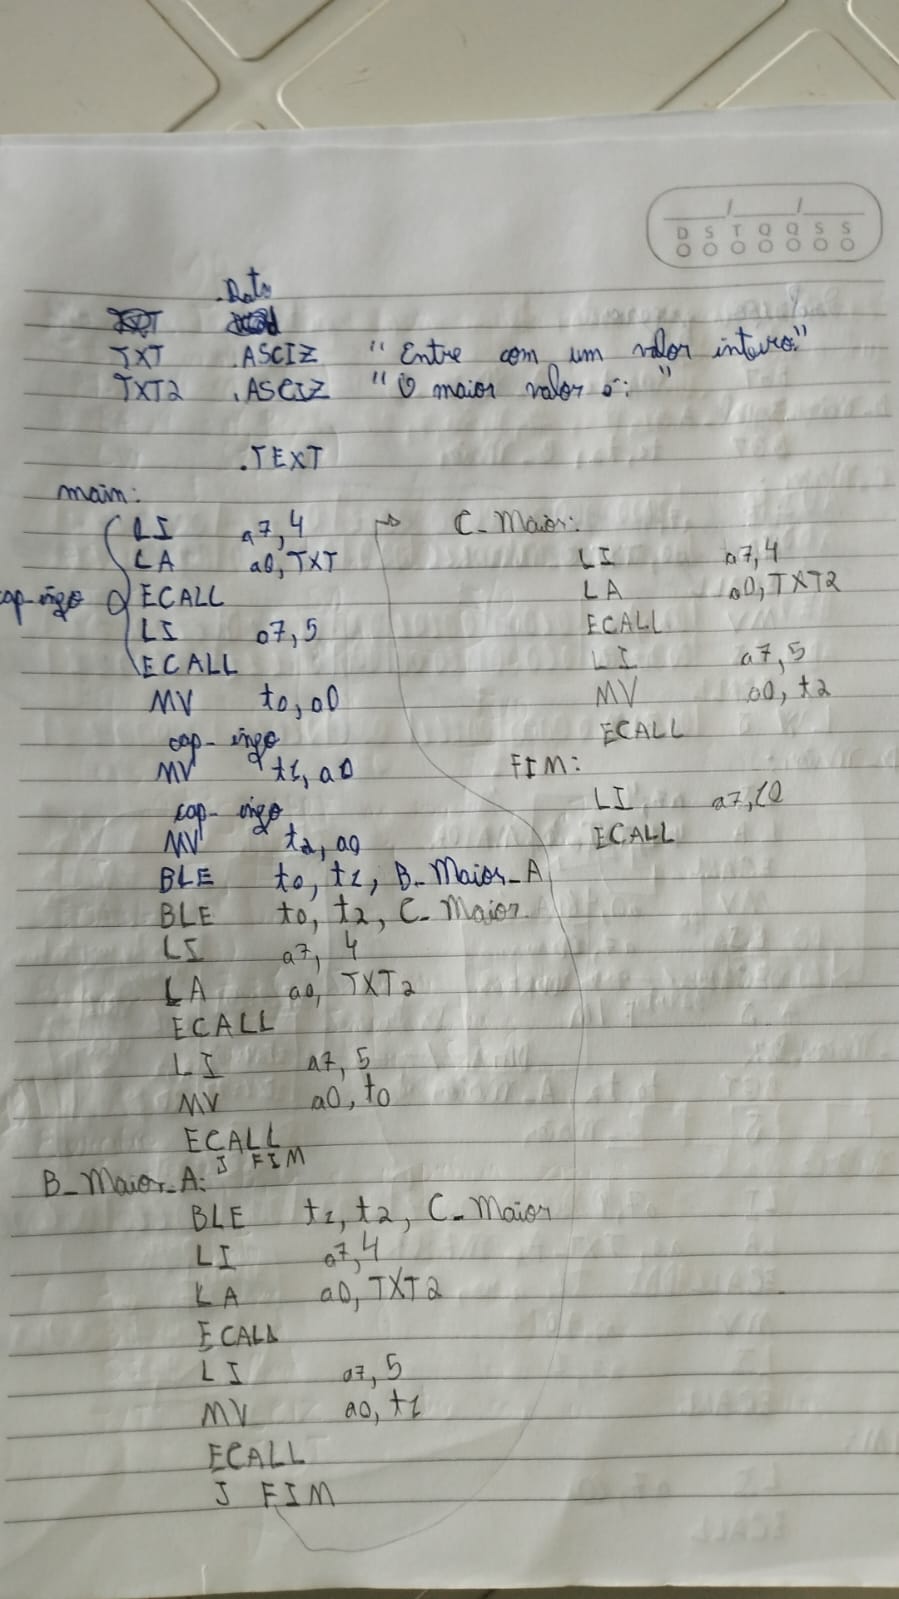 D S T Q Q S S
.Data
TXT .ASCIZ "Entre com um valor inteiro:"
TXT2 .ASCIZ "O maior valor é: "
.TEXT
main:
LI a7,4
LA a0,TXT
ECALL
LI a7,5
ECALL
MV t0,a0
MV t1,a0
MV t2,a0
BLE t0,t1, B_Maior_A
BLE t0,t2, C_Maior
LI a7, 4
LA a0, TXT2
ECALL
LI a7, 5
MV a0,t0
ECALL
J FIM
B_Maior_A:
BLE t1,t2, C_Maior
LI a7,4
LA a0, TXT2
ECALL
LI a7,5
MV a0,t1
ECALL
J FIM
C_Maior:
LI a7,4
LA a0,TXT2
ECALL
LI a7,5
MV a0,t2
ECALL
FIM:
LI a7,10
ECALL